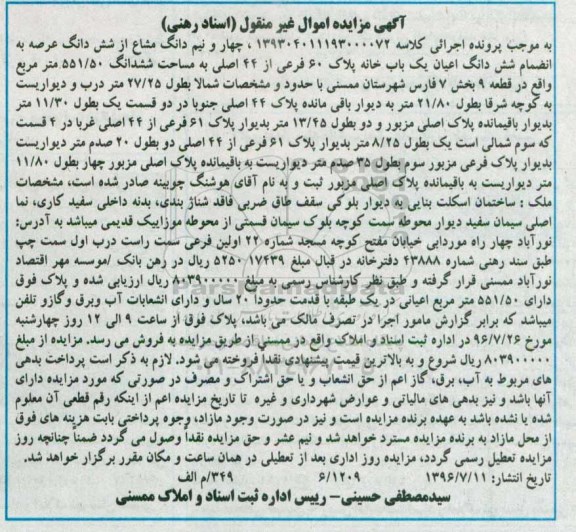 آگهی مزایده اموال غیر منقول (اسناد رهنی)
به موجب پرونده اجرائی کلاسه ۱۳۹۳۰۴۰۱۱۱۹۳۰۰۰۰۷۲ ، چهار و نیم دانگ مشاع از شش دانگ عرصه به
انضمام شش دانگ اعیان یک باب خانه پلاک ۶۰ فرعی از ۴۴ اصلی به مساحت ششدانگ ۵۵۱/۵۰ متر مربع
واقع در قطعه ۹ بخش ۷ فارس شهرستان ممسنی با حدود و مشخصات شمالا بطول ۲۷/۲۵ متر درب و دیواریست
به کوچه شرقا بطول ۲۱/۸۰ متر به دیوار باقی مانده پلاک ۴۴ اصلی جنوبا در دو قسمت یک بطول ۱۱/۳۰ متر
بدیوار باقیمانده پلاک اصلی مزبور و دو بطول ۱۳/۴۵ متر بدیوار پلاک ۶۱ فرعی از ۴۴ اصلی غربا در ۴ قسمت
که سوم شمالی است یک بطول ۸/۲۵ متر بدیوار پلاک ۶۱ فرعی از ۴۴ اصلی دو بطول ۲۰ صدم متر دیواریست
بدیوار پلاک فرعی مزبور سوم بطول ۳۵ صدم متر دیواریست به باقیمانده پلاک اصلی مزبور چهار بطول ۱۱/۸۰
متر دیواریست به باقیمانده پلاک اصلی مزبور ثبت و به نام آقای هوشنگ چوبینه صادر شده است، مشخصات
ملک : ساختمان اسکلت بنایی به دیوار بلوکی سقف طاق ضربی فاقد شناژ بندی، بدنه داخلی سفید کاری، نما
اصلی سیمان سفید دیوار محوطه سمت کوچه بلوک سیمان قسمتی از محوطه موزاییک قدیمی میباشد به آدرس:
نورآباد چهار راه موردایی خیابان مفتح کوچه مسجد شماره ۲۲ اولین فرعی سمت راست درب اول سمت چپ
طبق سند رهنی شماره ۴۳۸۸۸ دفترخانه در قبال مبلغ ۵۲۵۰۰۱۷۴۳۹ ریال در رهن بانک /موسسه مهر اقتصاد
نورآباد ممسنی قرار گرفته و طبق نظر کارشناس رسمی به مبلغ ریال ارزیابی شده و پلاک فوق
دارای ۵۵۱/۵۰ متر مربع اعیانی در یک طبقه با قدمت حدوداً ۲۰ سال و دارای انشعابات آب وبرق وگازو تلفن
میباشد که برابر گزارش مامور اجرا در تصرف مالک می باشد، پلاک فوق از ساعت ۹ الی ۱۲ روز چهارشنبه
مورخ ۹۶/۷/۲۶ در اداره ثبت اسناد و املاک واقع در ممسنی از طریق مزایده به فروش می رسد. مزایده از مبلغ
۸۰۳۹۰۰۰۰۰ ریال شروع و به بالاترین قیمت پیشنهادی نقدا فروخته می شود. لازم به ذکر است پرداخت بدهی
های مربوط به آب، برق، گاز اعم از حق انشعاب و یا حق اشتراک و مصرف در صورتی که مورد مزایده دارای
آنها باشد و نیز بدهی های مالیاتی و عوارض شهرداری و غیره تا تاریخ مزایده اعم از اینکه رقم قطعی آن معلوم
شده یا نشده باشد به عهده برنده مزایده است و نیز در صورت وجود مازاد، وجوه پرداختی بابت هزینه های فوق
از محل مازاد به برنده مزایده مسترد خواهد شد و نیم عشر و حق مزایده نقداً وصول می گردد ضمناً چنانچه روز
مزایده تعطیل رسمی گردد، مزایده روز اداری بعد از تعطیلی در همان ساعت و مکان مقرر برگزار خواهد شد.
تاریخ انتشار: ۱۳۹۶/۷/۱۱ ۶/۱۲۰۹ ۳۴۹/م الف
سیدمصطفی حسینی– رییس اداره ثبت اسناد و املاک ممسنی